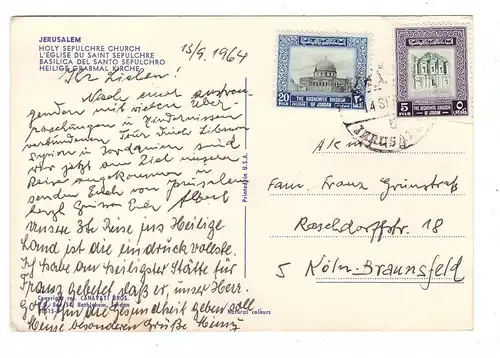 JERUSALEM
HOLY SEPULCHRE CHURCH
L'EGLISE DU SAINT SEPULCHRE
BASILICA DEL SANTO SEPULCHRO
HEILIGE GRABMAL KIRCHE
15/9. 1964
Ihr Lieben!
Nach einer anstren-
genden mit vielen Über-
raschungen u. Hindernissen
verbundenen Tour durch Libanon
Syrien u. Jordanien sind
wir jetzt am Ziel unserer
Reise angekommen u.
senden Euch von Jerusalem
herzl. Grüsse Euer Albert
Unsere 3te Reise ins Heilige
Land ist die eindruckvollste.
Ich habe an heiligster Stätte für
Franz gebetet daß er, unser Herr-
Gott ihm die Gesundheit geben soll
Meine besonderen Grüße Heinz
Copyright
CANAVATI BROS.
Bethlehem, Jordan
Natural colours
Printed in U.S.A.
20
FILS
POSTAGE
٢٠
THE HASHEMITE KINGDOM
OF JORDAN
5
FILS
٥
THE HASHEMITE KINGDOM
OF JORDAN
JERUSALEM
Fam. Franz Grünstraß
Roschdorffstr. 18
5 Köln-Braunsfeld